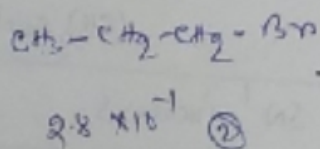 CH₃ - CH₂ - CH₂ - Br
2.8 × 10⁻¹ ②